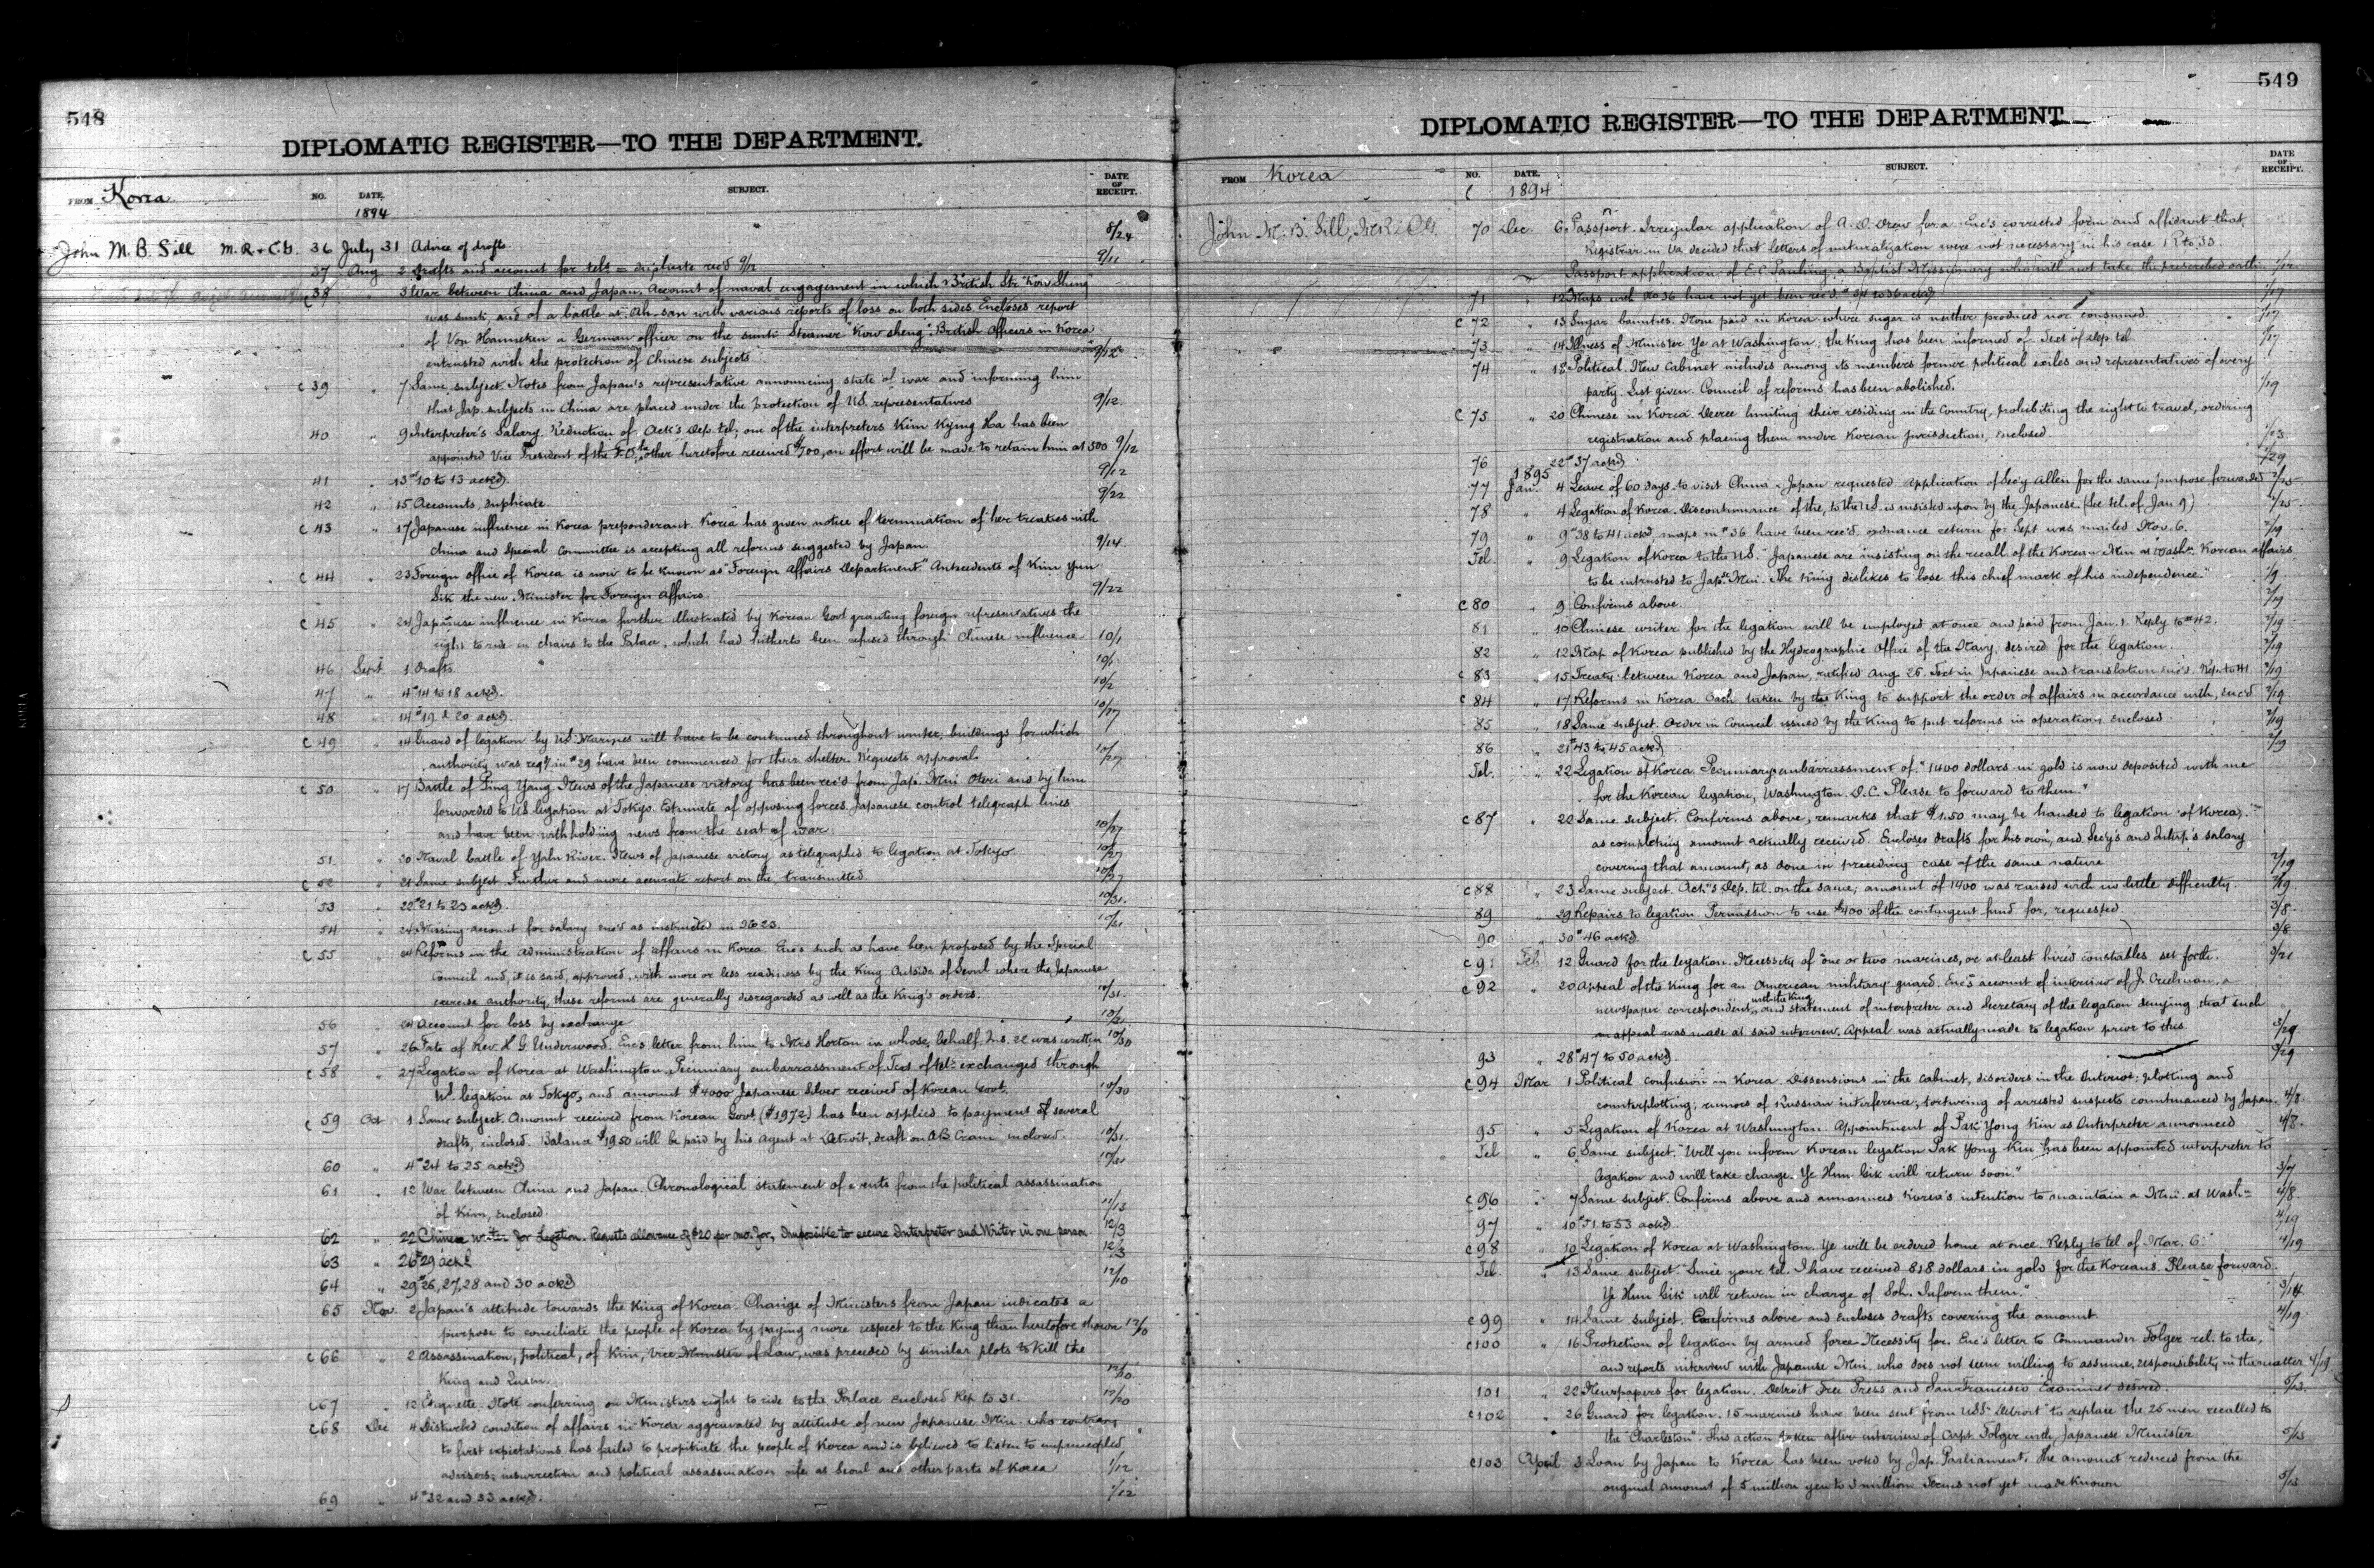 548
DIPLOMATIC REGISTER—TO THE DEPARTMENT.
FROM Korea NO. DATE. SUBJECT. DATE OF RECEIPT.
1894
John M. B. Sill M.R. + C.G. 36 July 31 Advice of drafts. 8/24
37 Aug 2 Drafts and account for tels = duplicate rec'd 9/2 9/11
38 " 3 War between China and Japan. Account of naval engagement in which British Str "Kow Shing"
was sunk, and of a battle at Ah-san with various reports of loss on both sides. Encloses report
of Von Hanneken a German officer on the sunk Steamer "Kow sheng" British Officers in Korea
entrusted with the protection of Chinese subjects 9/12
C 39 " 7 Same subject. Notes from Japan's representative announcing state of war and informing him
that Jap. subjects in China are placed under the protection of U.S. representatives 9/12.
40 " 9 Interpreter's Salary. Reduction of. Ack's Dep. tel; one of the interpreters Kim Kyung Ha has been
appointed Vice President of the F.O., the other heretofore received $700, an effort will be made to retain him at 500 9/12
41 " 13 # 10 to 13 ackd. 9/12
42 " 15 Accounts, duplicate. 9/22
C 43 " 17 Japanese influence in Korea preponderant. Korea has given notice of termination of her treaties with
China and Special Committee is accepting all reforms suggested by Japan. 9/14
C 44 " 23 Foreign office of Korea is now to be known as "Foreign Affairs Department." Antecedents of Kim Yun
Sik the new Minister for Foreign Affairs. 9/22
C 45 " 24 Japanese influence in Korea further illustrated by Korean Govt granting foreign representatives the
right to ride in chairs to the Palace, which had hitherto been refused through Chinese influence 10/1
46 Sept 1 Drafts 10/1
47 " 4 # 14 to 18 ackd. 10/2
48 " 14 # 19 & 20 ackd. 10/27
C 49 " 14 Guard of legation by U.S. Marines will have to be continued throughout winter; buildings for which
authority was reqd in # 29 have been commenced for their shelter. Requests approval. 10/27
C 50 " 17 Battle of Ping Yang. News of the Japanese victory has been rec'd from Jap. Min. Otori and by him
forwarded to U.S. legation at Tokyo. Estimate of opposing forces. Japanese control telegraph lines
and have been withholding news from the seat of war. 10/27
51 " 20 Naval battle of Yalu River. News of Japanese victory as telegraphed to legation at Tokyo 10/27
C 52 " 21 Same subject. Further and more accurate report on the, transmitted. 10/27
53 " 22 # 21 to 23 ackd. 10/31.
54 " 24 Missing account for salary enc'd as instructed in No 23. 10/31
C 55 " 24 Reforms in the administration of affairs in Korea. Enc's such as have been proposed by the Special
Council and, it is said, approved, with more or less readiness by the King. Outside of Seoul where the Japanese
exercise authority, these reforms are generally disregarded as well as the King's orders. 10/31.
56 " 24 Account for loss by exchange 10/31
57 " 26 Fate of Rev. H. G. Underwood. Enc's letter from him to Mrs Horton in whose behalf Ins. 22 was written 10/30
C 58 " 27 Legation of Korea at Washington. Pecuniary embarrassment of. Text of tels exchanged through
U.S. legation at Tokyo, and amount $4000 Japanese Silver received of Korean Govt. 10/30
C 59 Oct 1 Same subject. Amount received from Korean Govt ($1972) has been applied to payment of several
drafts, inclosed. Balance $19.50 will be paid by his agent at Detroit, draft on A.B. Cram inclosed. 10/31.
60 " 4 # 24 to 25 ackd 10/31
61 " 12 War between China and Japan. Chronological statement of events from the political assassination
of Kim, enclosed. 11/13
62 " 22 Chinese Writer for Legation. Requests allowance of $20 per mo. for, Impossible to secure Interpreter and Writer in one person 12/3
63 " 26 # 29 ackd 12/3
64 " 29 # 26, 27, 28 and 30 ackd 12/10
65 Nov. 2 Japan's attitude towards the King of Korea. Change of Ministers from Japan indicates a
purpose to conciliate the people of Korea by paying more respect to the King than heretofore shown 12/10
C 66 " 2 Assassination, political, of Kim, Vice Minister of Law, was preceded by similar plots to kill the
King and Queen. 12/10.
C 67 " 12 Etiquette. Note conferring on Ministers right to ride to the Palace enclosed. Rep. to 31. 12/20
C 68 Dec 4 Disturbed condition of affairs in Korea aggravated by attitude of new Japanese Min. who contrary
to first expectations has failed to propitiate the people of Korea and is believed to listen to unprincipled
advisors; insurrection and political assassination rife at Seoul and other parts of Korea 1/12
69 " 4 # 32 and 33 ackd. 1/12
549
DIPLOMATIC REGISTER—TO THE DEPARTMENT
FROM Korea NO. DATE. SUBJECT. DATE OF RECEIPT.
C 1894
John M. B. Sill, MR & CG. 70 Dec. 6 Passport. Irregular application of A. D. Drew for a. Enc's corrected form and affidavit that
Registrar in Va. decided that letters of naturalization were not necessary in his case. R to 33.
Passport application of E. C. Pauling a Baptist Missionary who will not take the prescribed oath.
71 " 12 Maps with No 36 have not yet been rec'd. 1/17
C 72 " 13 Sugar bounties. None paid in Korea where sugar is neither produced nor consumed. 1/17
73 " 14 Illness of Minister Ye at Washington; the King has been informed of. Text of dep. tel. 1/17
74 " 18 Political. New Cabinet includes among its members former political exiles and representatives of every
party. List given. Council of reforms has been abolished. 1/19
C 75 " 20 Chinese in Korea. Decree limiting their residing in the Country, prohibiting the right to travel, ordering
registration and placing them under Korean jurisdiction, enclosed. 1/23
76 " 22 # 37 ackd. 1/29
1895
77 Jan. 4 Leave of 60 days to visit China & Japan requested. Application of Sec'y Allen for the same purpose forwarded 2/25
78 " 4 Legation of Korea. Discontinuance of the, to the U.S. is insisted upon by the Japanese. (See tel. of Jan 9) 2/25
79 " 9 # 38 to 41 ackd, maps in # 36 have been rec'd. ordnance return for Sept was mailed Nov. 6. 2/19
Tel " 9 Legation of Korea to the U.S. "Japanese are insisting on the recall of the Korean Min at Washn. Korean affairs
to be intrusted to Jap. Min. The King dislikes to lose this chief mark of his independence." 1/9
C 80 " 9 Confirms above. 2/19
81 " 10 Chinese writer for the legation will be employed at once and paid from Jan. 1. Reply to # 42. 2/19
82 " 12 Map of Korea published by the Hydrographic Office of the Navy, desired for the legation. 2/19
C 83 " 15 Treaty between Korea and Japan, ratified Aug 26. Text in Japanese and translation enc'd. Rep. to 41. 2/19
C 84 " 17 Reforms in Korea. Oath taken by the King to support the order of affairs in accordance with, enc'd 2/19
85 " 18 Same subject. Order in Council issued by the King to put reforms in operation, enclosed 2/19
86 " 21 # 43 to 45 ackd 2/19
Tel. " 22 Legation of Korea. Pecuniary embarrassment of. "1400 dollars in gold is now deposited with me
for the Korean legation, Washington. D.C. Please to forward to them."
C 87 " 22 Same subject. Confirms above, remarks that $1.50 may be handed to legation of Korea,
as completing amount actually received. Encloses drafts for his own, and Secy's and Interp.'s salary
covering that amount, as done in preceding case of the same nature 2/19
C 88 " 23 Same subject. Ack's Dep. tel. on the same; amount of 1400 was raised with no little difficulty. 2/19.
89 " 29 Repairs to legation. Permission to use $400 of the contingent fund for, requested 3/8
90 " 30 # 46 ackd. 3/8
C 91 Feb 12 Guard for the legation. Necessity of "one or two marines, or at least hired constables set forth. 3/21
C 92 " 20 Appeal of the King for an American military guard. Enc's account of interview of J. Creelman, a
newspaper correspondent, with the King and statement of interpreter and Secretary of the legation denying that such
an appeal was made at said interview. Appeal was actually made to legation prior to this 3/29
93 " 28 # 47 to 50 ackd 3/29
C 94 Mar 1 Political confusion in Korea. Dissensions in the Cabinet, disorders in the Interior; plotting and
counterplotting; rumors of Russian interference, torturing of arrested suspects countenanced by Japan. 4/8.
95 " 5 Legation of Korea at Washington. Appointment of Pak Yong Kiu as Interpreter announced 4/8.
Tel " 6 Same subject. "Will you inform Korean legation Pak Yong Kiu has been appointed interpreter to
legation and will take charge. Ye Hun Cik will return soon." 3/7
C 96 " 7 Same subject. Confirms above and announces Korea's intention to maintain a Min. at Wash= 4/8
97 " 10 # 51 to 53 ackd 4/19
C 98 " 10 Legation of Korea at Washington. Ye will be ordered home at once. Reply to tel of Mar. 6. 4/19
Tel. " 13 Same subject. "Since your tel. I have received 818 dollars in gold for the Koreans. Please forward.
Ye Hun Cik will return in charge of Soh. Inform them." 3/14
C 99 " 14 Same subject. Confirms above and encloses drafts covering the amount 4/19.
C 100 " 16 Protection of legation by armed force. Necessity for. Enc's letter to Commander Folger rel. to the,
and reports interview with Japanese Min. who does not seem willing to assume responsibility in the matter. 4/19
101 " 22 Newspapers for legation. Detroit Free Press and San Francisco Examiner desired. 5/13.
C 102 " 26 Guard for legation. 15 marines have been sent from U.S.S. "Detroit" to replace the 25 men recalled to
the "Charleston". This action taken after interview of Capt Folger with Japanese Minister 5/13
C 103 April 3 Loan by Japan to Korea has been voted by Jap. Parliament. The amount reduced from the
original amount of 5 million yen to 3 million. Terms not yet made known 5/13